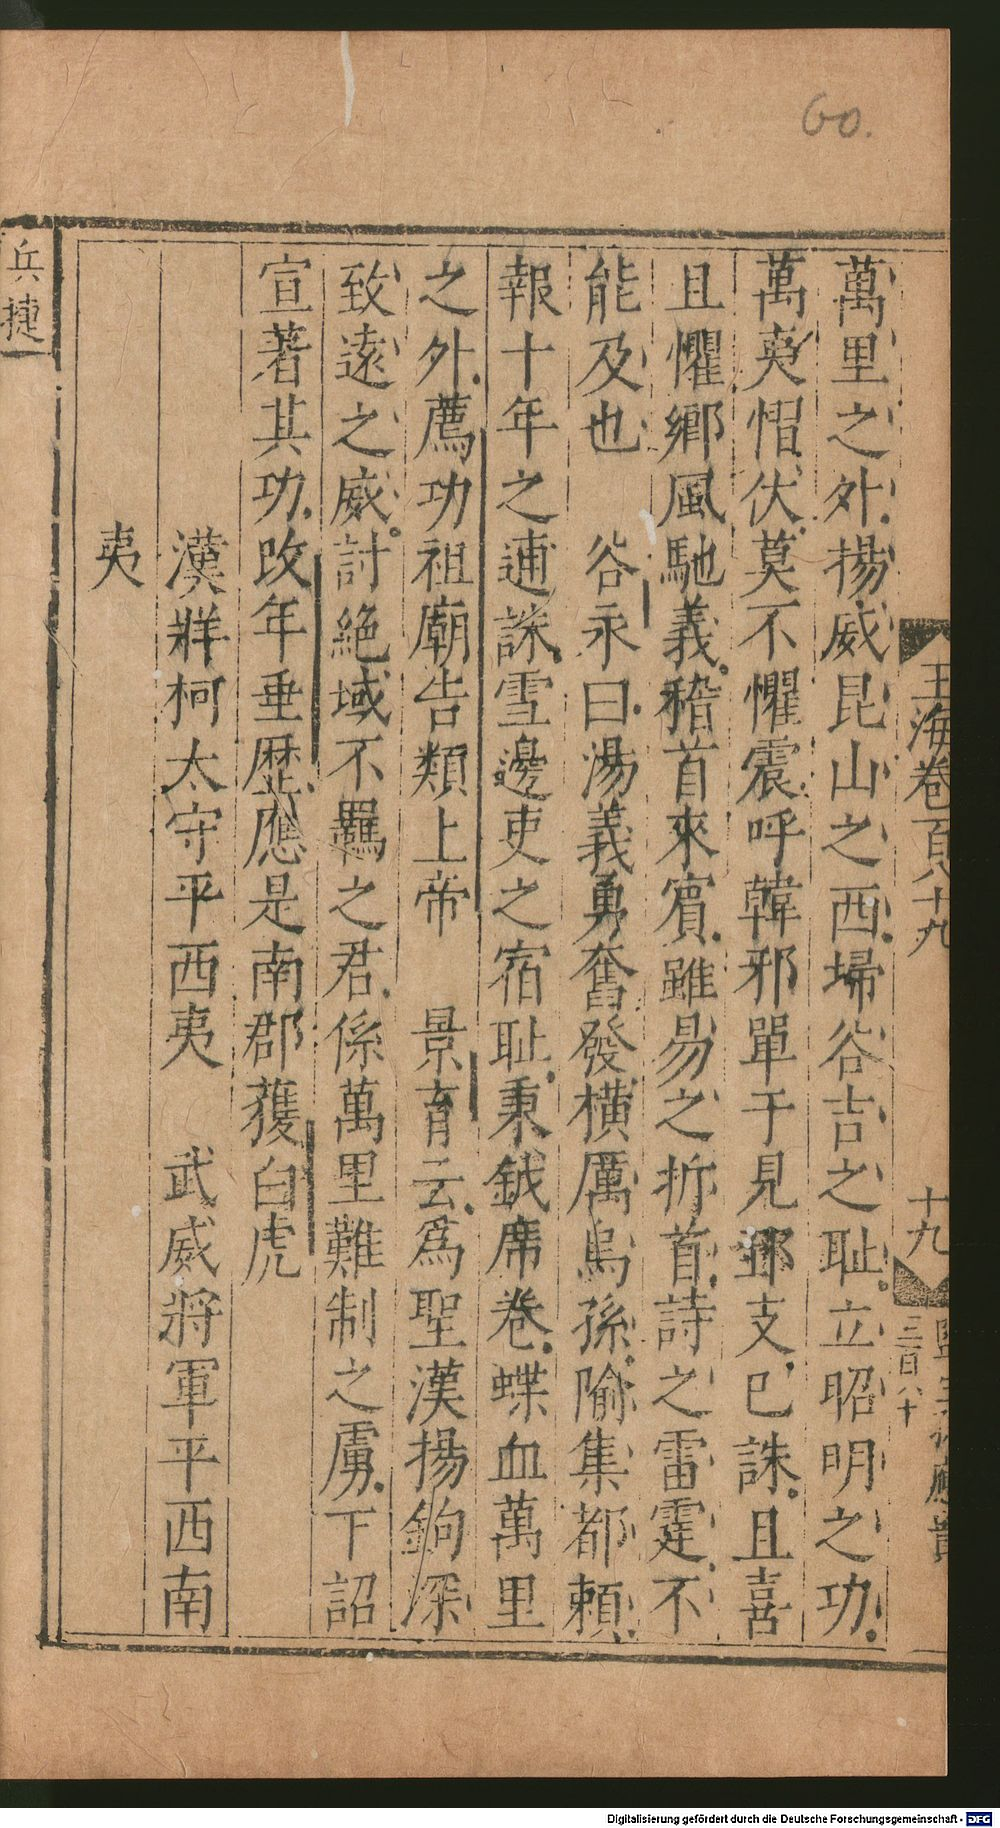 60.
玉海卷百八十九
十九
三百八十
萬里之外揚威昆山之西埽谷吉之耻立昭明之功
萬夷慴伏莫不懼震呼韓邪單于見郅支已誅且喜
且懼鄉風馳義稽首來賔雖易之折首詩之雷霆不
能及也　谷永曰湯義勇奮發橫厲烏孫隃集都頼
報十年之逋誅雪邊吏之宿耻秉鉞席卷蝶血萬里
之外薦功祖廟告類上帝　景育云爲聖漢揚鉤深
致遠之威討絶域不羈之君係萬里難制之虜下詔
宣著其功改年垂歷應是南郡獲白虎
漢牂柯太守平西夷　武威將軍平西南
夷
兵捷
Digitalisierung gefördert durch die Deutsche Forschungsgemeinschaft - DFG